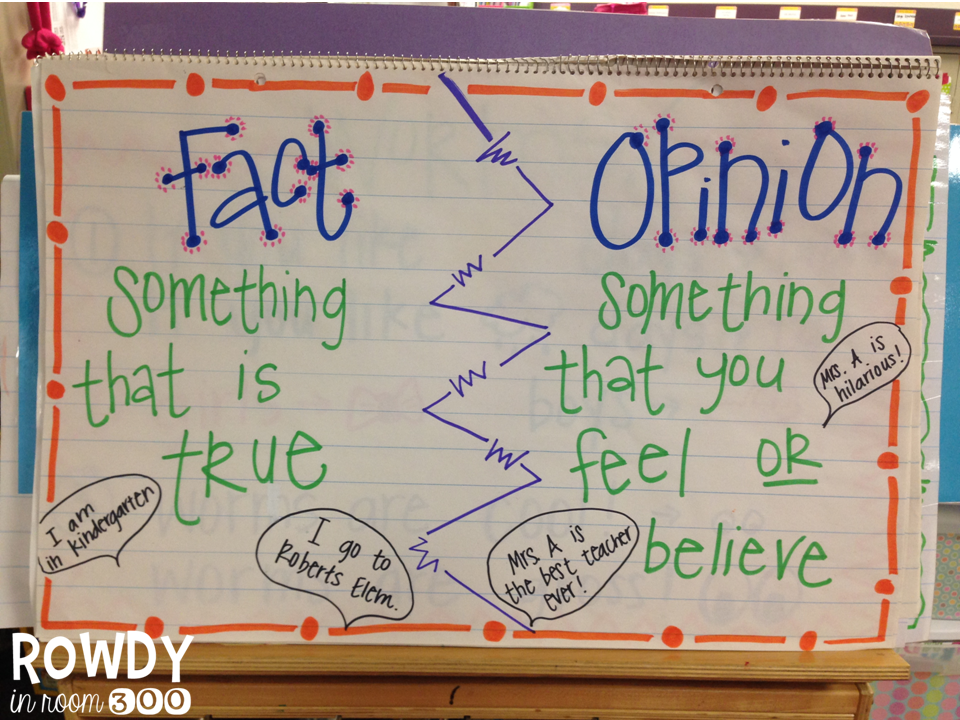 Fact
Something
that is
true
I am
in kindergarten
I go to
Roberts Elem.
Opinion
Something
that you
feel OR
believe
Mrs. A is
hilarious!
Mrs. A is
the best teacher
ever!
ROWDY
in room 300